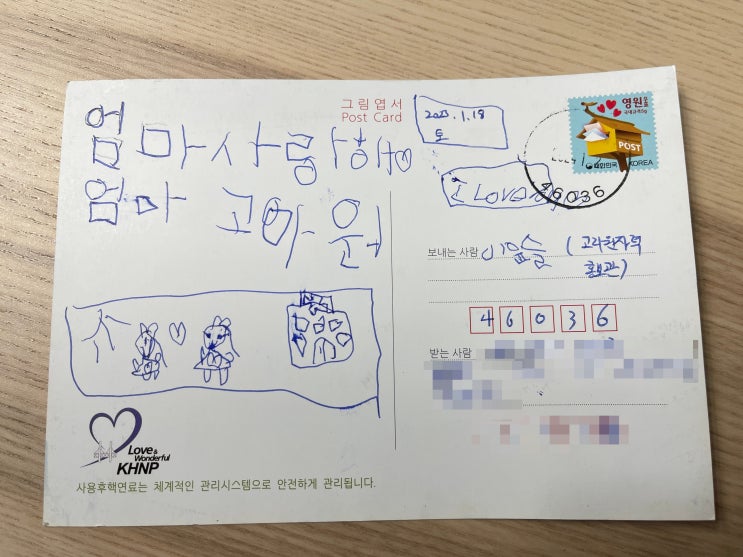 그림엽서
Post Card
엄마사랑해♡
엄마 고마워
2023.1.18
토
영원
POST
대한민국 KOREA
46036
I LOVE
보내는 사람 (고리원자력
홍보관)
4 6 0 3 6
받는 사람
Love &
Wonderful
KHNP
사용후핵연료는 체계적인 관리시스템으로 안전하게 관리됩니다.